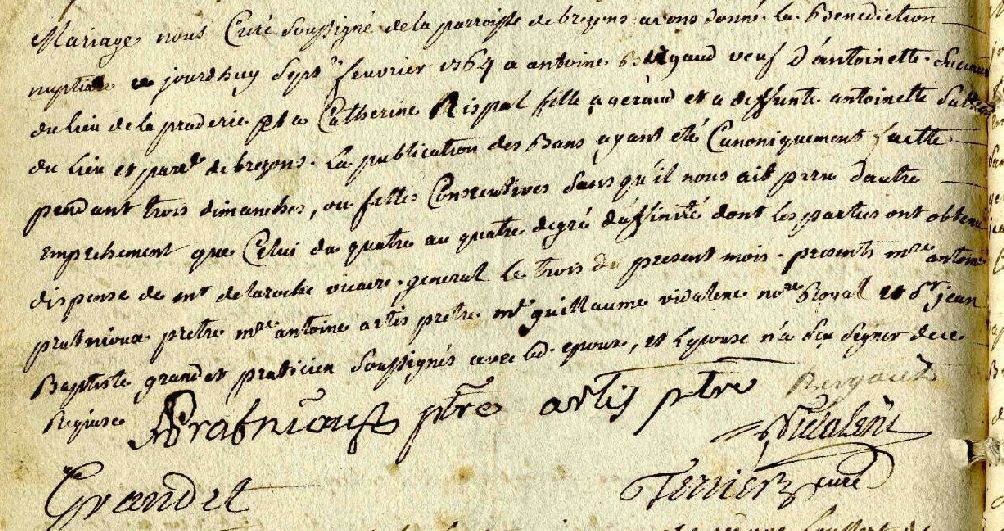 Mariage nous Curé soussigné de la parroisse de brezons avons donné la Benediction
nuptialle ce jourdhuy sept fevrier 1764 a antoine Bergaud veuf d'antoinette
du lieu de la praderie et a Catherine Rispal fille a géraud et a deffunte antoinette
du lieu et par. de brezons. La publication des Bans ayant eté Canoniquement faitte
pendant trois dimanches, ou festes Consecutives sans qu'il nous ait paru dautre
empechement que Celui du quatre au quatre degré d'affinité dont les parties ont obtenu
dispense de mr delaroche vicaire general le trois du present mois. presents mre antoine
pratnioux pretre mre antoine artis pretre mr guillaume vidalenc nore Royal et Sr jean
Baptiste grandet praticien soussignés avec led. epoux, et Lepouse n'a sçu signer de ce
Requise
Pratnioux ptre artis ptre Bergaud
Vidalenc
Grandet Terrier curé